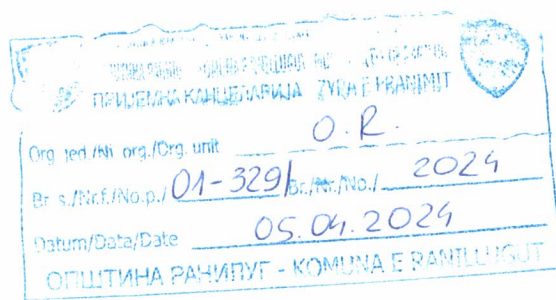 ПРИЈЕМНА КАНЦЕЛАРИЈА ZYRA E PRANIMIT
Org. jed./Nj. org./Org. unit O.R.
Br. s./Nr.f./No.p./ 01-329/ Br./Nr./No./ 2024
Datum/Data/Date 05.04.2024
ОПШТИНА РАНИЛУГ - KOMUNA E RANILLUGUT